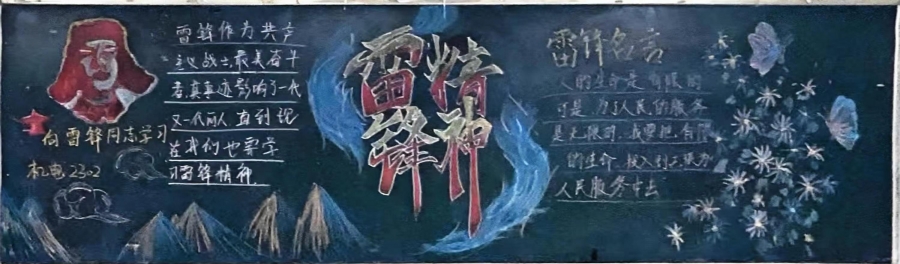 向雷锋同志学习
机电2302
雷锋作为共产
主义战士最美奋斗
者真真正影响了一代
又一代的人直到现
在我们也要学
习雷锋精神
雷锋精神
雷锋名言
人的生命是有限的
可是为人民的服务
是无限的我要把有限
的生命投入到无限为
人民服务中去